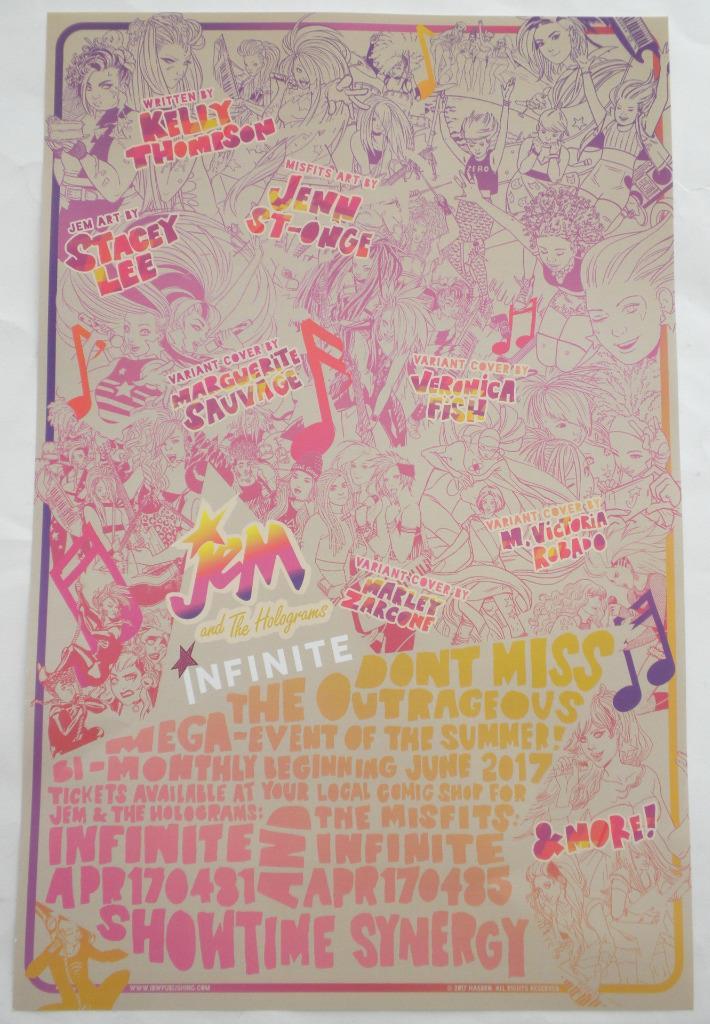 WRITTEN BY
KELLY
THOMPSON
MISFITS ART BY
JENN
ST-ONGE
JEM ART BY
STACEY
LEE
VARIANT COVER BY
MARGUERITE
SAUVAGE
VARIANT COVER BY
VERONICA
FISH
ZERO
VARIANT COVER BY
M. VICTORIA
ROBADO
VARIANT COVER BY
MARLEY
ZARCONE
JEM
and The Holograms
INFINITE
DONT MISS
THE OUTRAGEOUS
MEGA-EVENT OF THE SUMMER!
BI-MONTHLY BEGINNING JUNE 2017
TICKETS AVAILABLE AT YOUR LOCAL COMIC SHOP FOR
JEM & THE HOLOGRAMS:
INFINITE
APR170481
AND
THE MISFITS:
INFINITE
APR170485
& MORE!
SHOWTIME SYNERGY
WWW.IDWPUBLISHING.COM
© 2017 HASBRO. ALL RIGHTS RESERVED